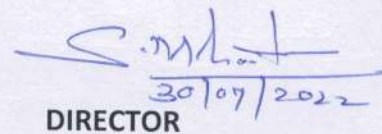 30/07/2022
DIRECTOR